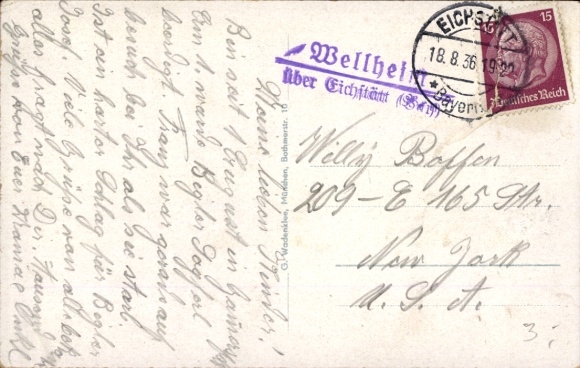 Meine lieben Kinder!
Bin seit 1 August in
Am wurde Begler
beerdigt Frau war gerade auf
besuch bei Ihr als sie starb
Ist ein harter Schlag für Begler
Josef. Viele Grüße von all
alles fragt nach Dir. Tausend
Grüße von Euer Mama &
G. Wadenklee, München, Bothmerstr. 10
Wellheim
über Eichstätt (Bay)
EICHSTÄTT
18.8.36.19-20
*(Bayern)
15
Deutsches Reich
Willy Boffen
209-E 165 Str.
New York
U. S. A.
3.